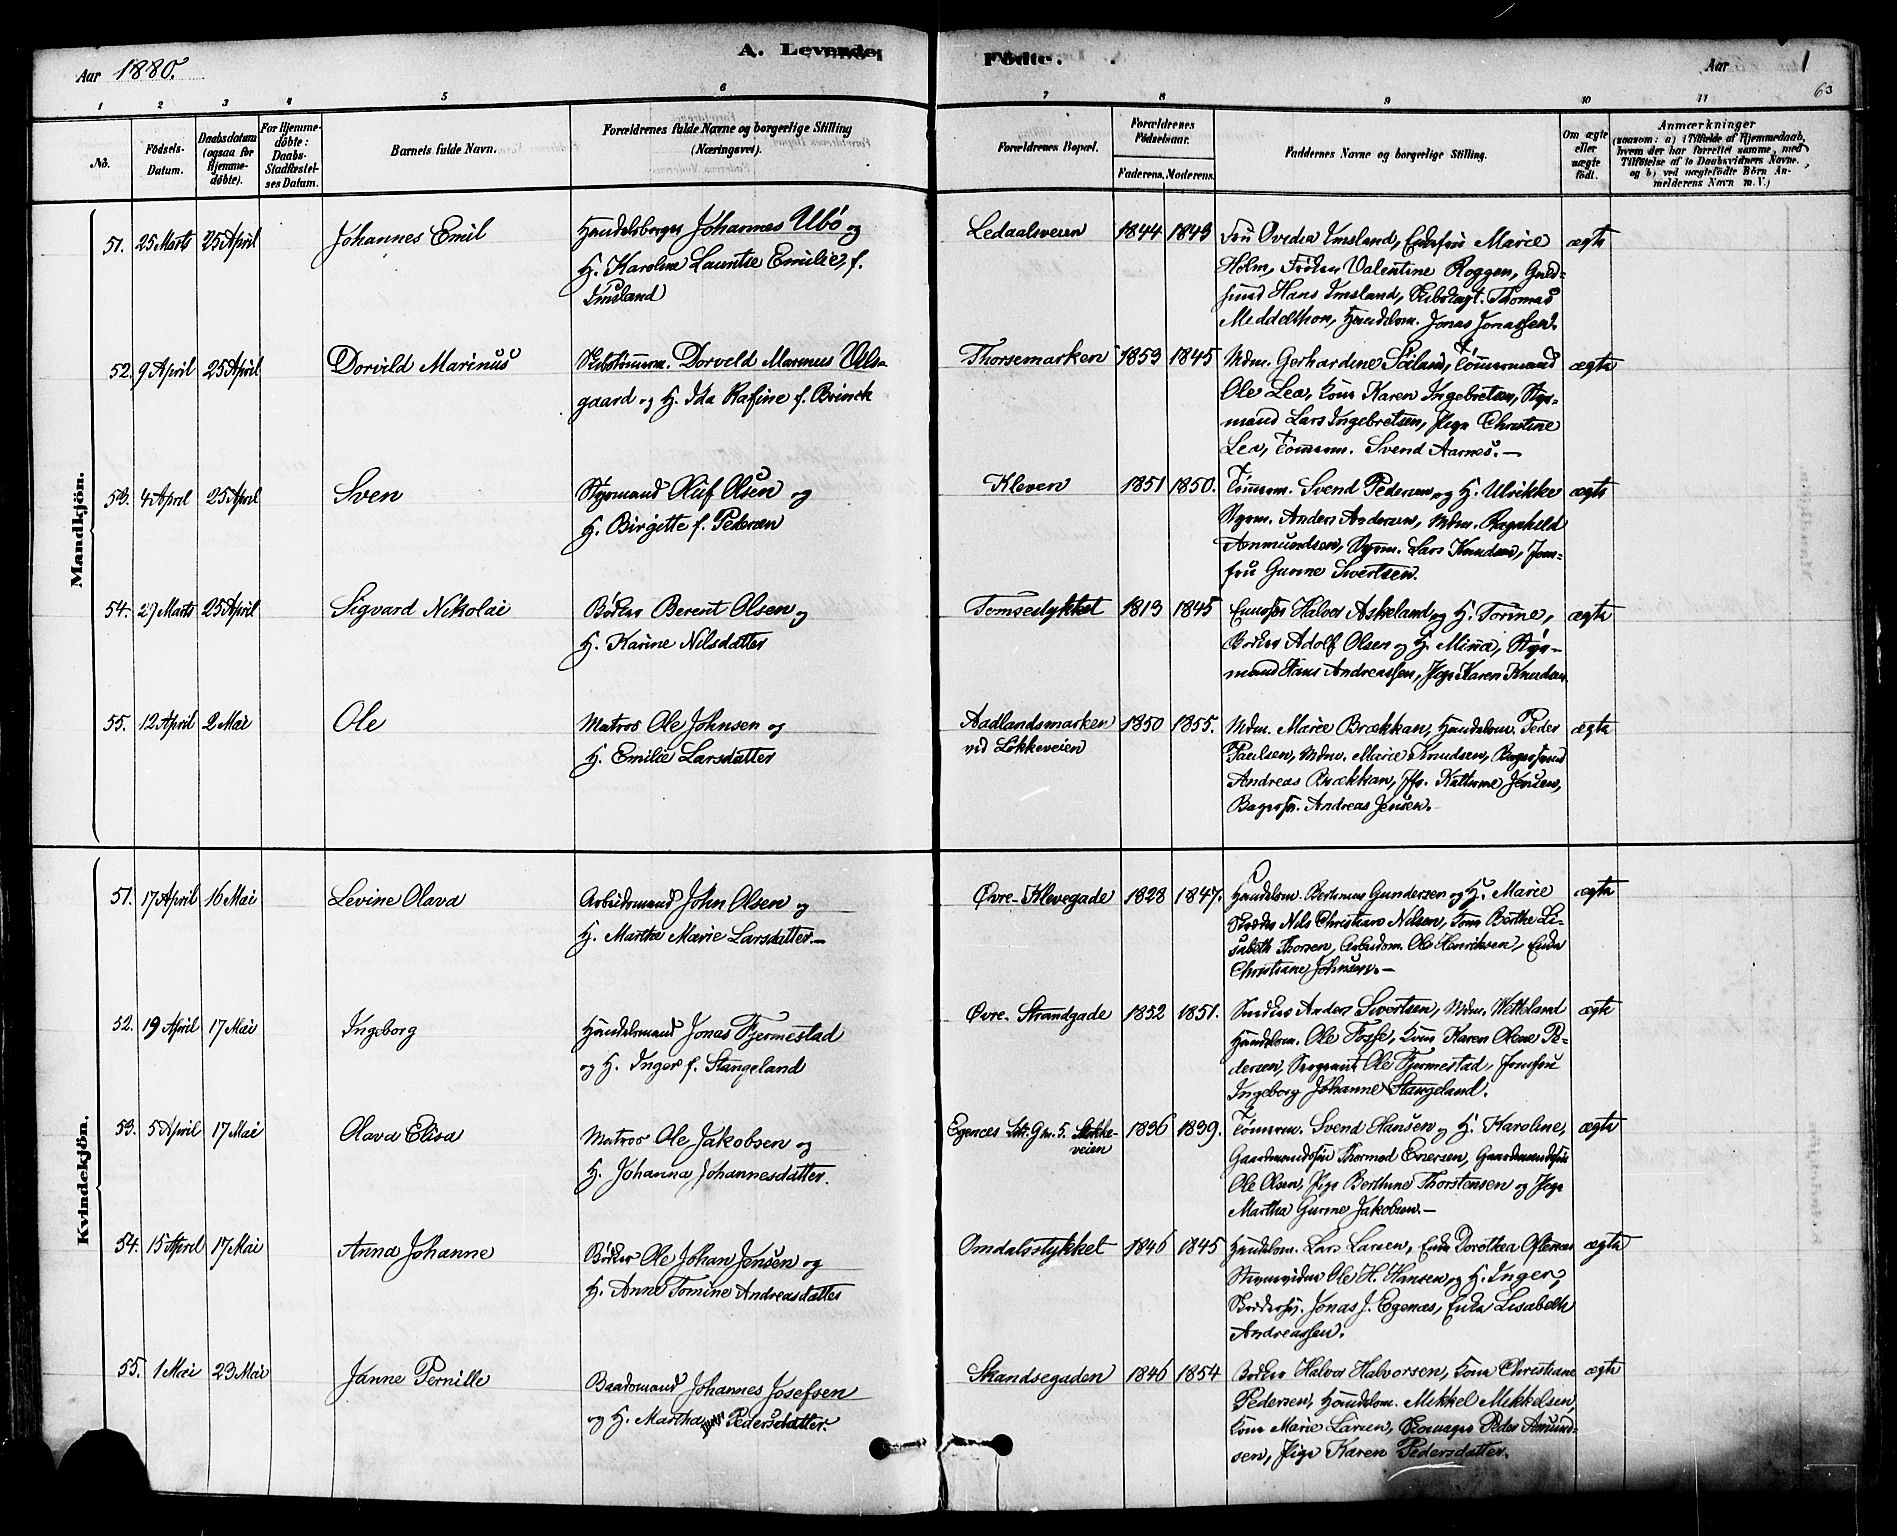 A. Levende
Fødte.
Aar 1880.
Aar 1
63
1 2 3 4 5 6
7 8 9 10 11
No.
Fødsels-
Datum.
Daabsdatum
(ogsaa for
Hjemme-
døbte).
For Hjemme-
døbte:
Daabs-
Stadfæstel-
ses Datum.
Barnets fulde Navn.
Forældrenes fulde Navne og borgerlige Stilling
(Næringsvei).
Forældrenes Bopæl.
Forældrenes
Fødselsaar.
Faderens. Moderens.
Faddernes Navne og borgerlige Stilling.
Om ægte
eller
uægte
født.
Anmærkninger
(saasom: a) i Tilfælde af Hjemmedaab,
hvem der har forrettet samme, med
Tilføielse af to Daabsvidners Navne,
og b) ved uægtefødte Børn An-
melderens Navn m. V.)
Mandkjön.
51. 25 Marts 25 April Johannes Emil
Handelsborger Johannes Ubö og
H. Karoline Launtse Emilie, f.
Imsland
Ledaalsveien 1844 1843
Fru Ovedia Imsland, Enkefru Marie
Holm, Frøken Valentine Roggen, Guld-
smed Hans Imsland, Skibscapt. Thomas
Meddelthon, Handelsm. Jonas Jonassen.
ægte
52. 9 April 25 April Dorvild Marinus
Skibstömmerm. Dorveld Marinus Vels-
gaard og H. Ida Rafine f. Brinck
Thorsemarken 1853 1845
Mdm. Gerhardine Söiland, Tömmermand
Ole Lea, Kone Karen Ingebretsen, Styr-
mand Lars Ingebretsen, Pige Christine
Lea, Tömmerm. Svend Aarnes.—
ægte
53. 4 April 25 April Sven
Styrmand Oluf Olsen og
H. Birgitte f. Pedersen
Kleven 1851 1850.
Tömmerm. Svend Pedersen og H. Ulrikke
Styrm. Anders Andersen, Mdm. Ragnhild
Anmundsen, Styrm. Lars Knudsen, Jom-
fru Gurine Sivertsen.
ægte
54. 29 Marts 25 April Sigvard Nikolai
Bødker Berent Olsen og
H. Karine Nilsdatter
Tomsestykket 1813 1845
Halvor Askeland og H. Torine,
Bødker Adolf Olsen og H. Mina, Styr-
mand Hans Andreassen, Pige Karen Knudsen
ægte
55. 12 April 2 Mai Ole
Matros Ole Johnsen og
H. Emilie Larsdatter
Aadlandsmarken
ved Løkkeveien
1850 1855.
Mdm. Marie Brækkan, Handelsm. Peder
Paulsen, Mdm. Marie Knudsen, Bagersvend
Andreas Brækkan, Jfr. Kathrine Jensen,
Bagersv. Andreas Jensen.
ægte
Kvindekjön.
51. 17 April 16 Mai Levine Olava
Arbeidsmand John Olsen og
H. Martha Marie Larsdatter.—
Øvre-Klevegade 1828 1847.
Handelsm. Berthinius Gundersen og H. Marie
Skrædder Nils Christian Nilsen, Kone Berthe Li-
sabeth Thorsen, Arbeidsm. Ole Henriksen, Enke
Christiane Johnsen.—
ægte
52. 19 April 17 Mai Ingeborg
Handelsmand Jonas Fjermestad
og H. Inger f. Stangeland
Øvre-Strandgade 1852 1851.
Snedker Anders Sivertsen, Mdm. Wetteland
Handelsm. Ole Fosse, Kone Karen Olene Pe-
dersen, Sergeant Ole Fjermestad, Jomfru
Ingeborg Johanne Stangeland.
ægte
53. 5 April 17 Mai Olava Elisa
Matros Ole Jakobsen og
H. Johanna Johannesdatter.
Egenes Str. G. n. 5. Løkke-
veien
1836 1839.
Tömmerm. Svend Hansen og H. Karoline,
Gaardmandsfru Thormod Enersen, Gaardmandsfru
Ole Olsen, Pige Berthine Thorstensen og Pige
Martha Gurine Jakobsen.—
ægte
54. 15 April 17 Mai Anna Johanne
Bødker Ole Johan Jensen og
H. Anne Tomine Andreasdatter
Omdalsstykket 1846 1845
Handelsm. Lars Larsen, Enke Dorothea Oftenæs
Ole H. Hansen og H. Inger,
Jonas J. Egenæs, Enke Lisabeth
Andreassen.
ægte
55. 1 Mai 23 Mai Janne Pernille
Baadsmand Johannes Josefsen
og H. Martha Pedersdatter.
Skandsegaden 1846 1854
Bødker Halvor Halvorsen, Kone Christiane
Pedersen, Handelsm. Mikkel Mikkelsen,
Kone Marie Larsen, Skomager Peder Amund-
sen, Pige Karen Pedersdatter.
ægte